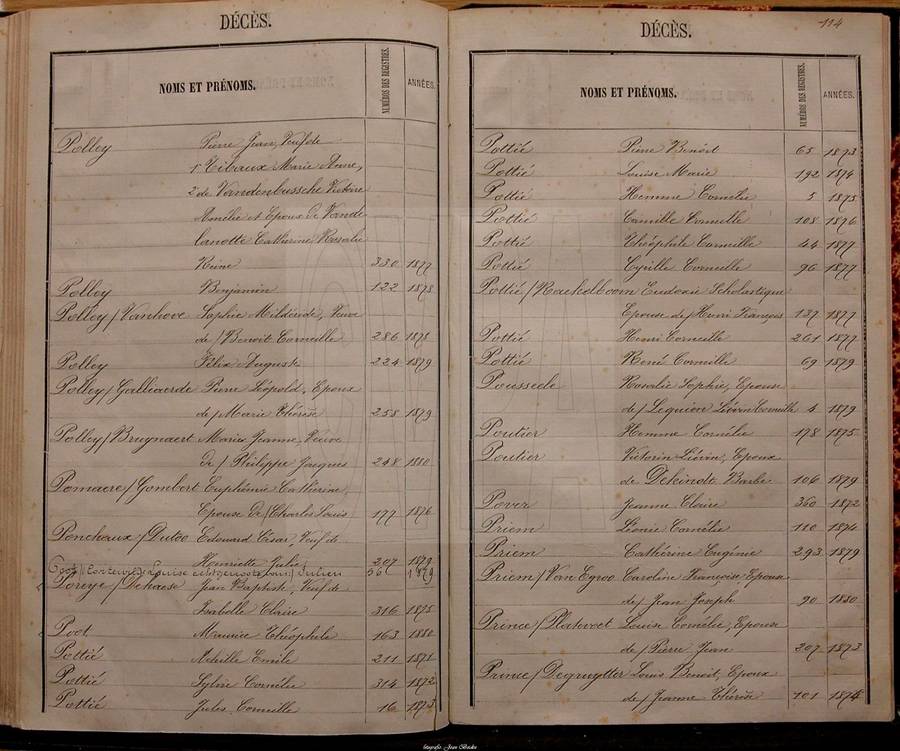 DÉCÈS.
NOMS ET PRÉNOMS. NUMÉROS DES REGISTRES. ANNÉES.
Polley Pierre Jean, Veuf de
1° Tibaux Marie Anne,
2° de Vandenbussche Victoire
Amélie et Epoux de Vande
lanotte Catherine Rosalie
Reine 330 1877
Polley Benjamin 122 1878
Polley/Vanhove Sophie Mildrède, Veuve
de/Benoit Corneille 286 1878
Polley Félix Auguste 224 1879
Polley/Galliaerde Pierre Léopold, Epoux
de/Marie Thérèse 258 1879
Polley/Bruynaert Marie Jeanne, Veuve
de/Philippe Jacques 248 1880
Pomaere/Gombert Euphémie Catherine,
Epouse de/Charles Louis 177 1876
Ponchaux/Duloo Edouard César, Veuf de
Henriette Julie 207 1879
Poot 56 1879
Poreye/Dehaese Jean Baptiste, Veuf de
Isabelle Claire 316 1875
Poot Maurice Théophile 163 1880
Pottié Achille Emile 211 1871
Pottié Sylvie Cornélie 314 1872
Pottié Jules Corneille 16 1873
114
DÉCÈS.
NOMS ET PRÉNOMS. NUMÉROS DES REGISTRES. ANNÉES.
Pottié Pierre Benoit 65 1873
Pottié Louise Marie 192 1874
Pottié Hemme Cornélie 5 1875
Pottié Camille Corneille 108 1876
Pottié Théophile Corneille 44 1877
Pottié Cyrille Corneille 96 1877
Pottié/Raekelboom Eudoxie Scholastique
Epouse de/Henri François 137 1877
Pottié Henri Corneille 261 1877
Pottié René Corneille 69 1879
Pousseele Rosalie Sophie, Epouse
de/Lequien Liévin Corneille 4 1879
Poutier Hemme Cornélie 178 1875
Poutier Victorin Liévin, Epoux
de Dekindt Barbe 106 1879
Pover Jeanne Claire 360 1872
Priem Léonie Cornélie 110 1874
Priem Catherine Eugénie 293 1879
Priem/Van Egroo Caroline Françoise Epouse
de/Jean Joseph 90 1880
Prince/Platevoet Louise Cornélie, Epouse
de/Pierre Jean 207 1873
Prince/Degruytter Louis Benoit, Epoux
de/Jeanne Thérèse 101 1874